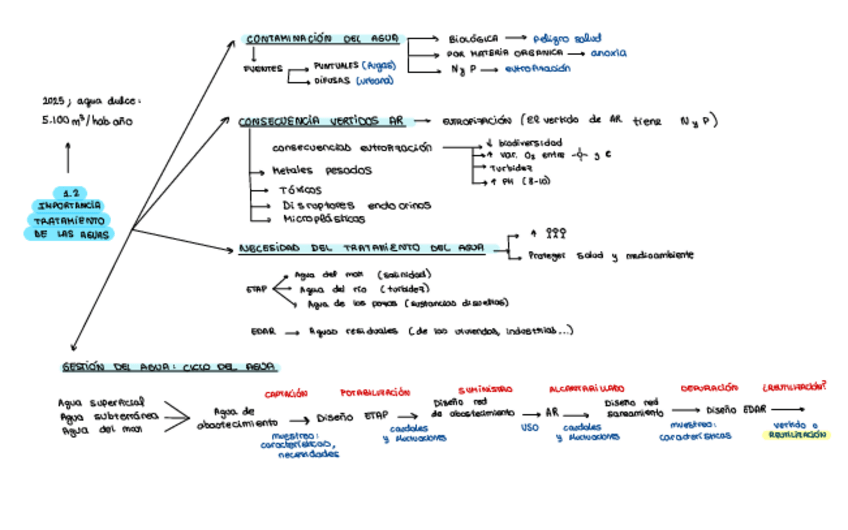 CONTAMINACIÓN DEL AGUA
BIOLÓGICA → peligro salud
POR MATERIA ORGANICA → anoxia
N y P → eutrofización
FUENTES
PUNTUALES (Aguas)
DIFUSAS (urbana)
2025; agua dulce:
5.100 m³/hab año
1.2
IMPORTANCIA
TRATAMIENTO
DE LAS AGUAS
CONSECUENCIA VERTIDOS AR → EUTROFIZACIÓN (El vertido de AR tiene N y P)
consecuencias eutrofización
↓ biodiversidad
↑ var. O₂ entre ☼ y ☾
Turbidez
↑ PH (8-10)
Metales pesados
TÓXICOS
Disruptores endocrinos
Microplásticos
NECESIDAD DEL TRATAMIENTO DEL AGUA
↑
Proteger salud y medioambiente
ETAP
Agua del mar (salinidad)
Agua del río (turbidez)
Agua de los pozos (sustancias disueltas)
EDAR → Aguas residuales (de las viviendas, industrias...)
GESTIÓN DEL AGUA: CICLO DEL AGUA
CAPTACIÓN POTABILIZACIÓN SUMINISTRO ALCANTARILLADO DEPURACIÓN ¿REUTILIZACIÓN?
Agua superficial
Agua subterránea
Agua del mar
Agua de
abastecimiento → Diseño ETAP → Diseño red
de abastecimiento → AR → Diseño red
saneamiento → Diseño EDAR →
muestreo:
características,
necesidades
caudales
y fluctuaciones
USO
caudales
y fluctuaciones
muestreo:
características
vertido o
REUTILIZACIÓN